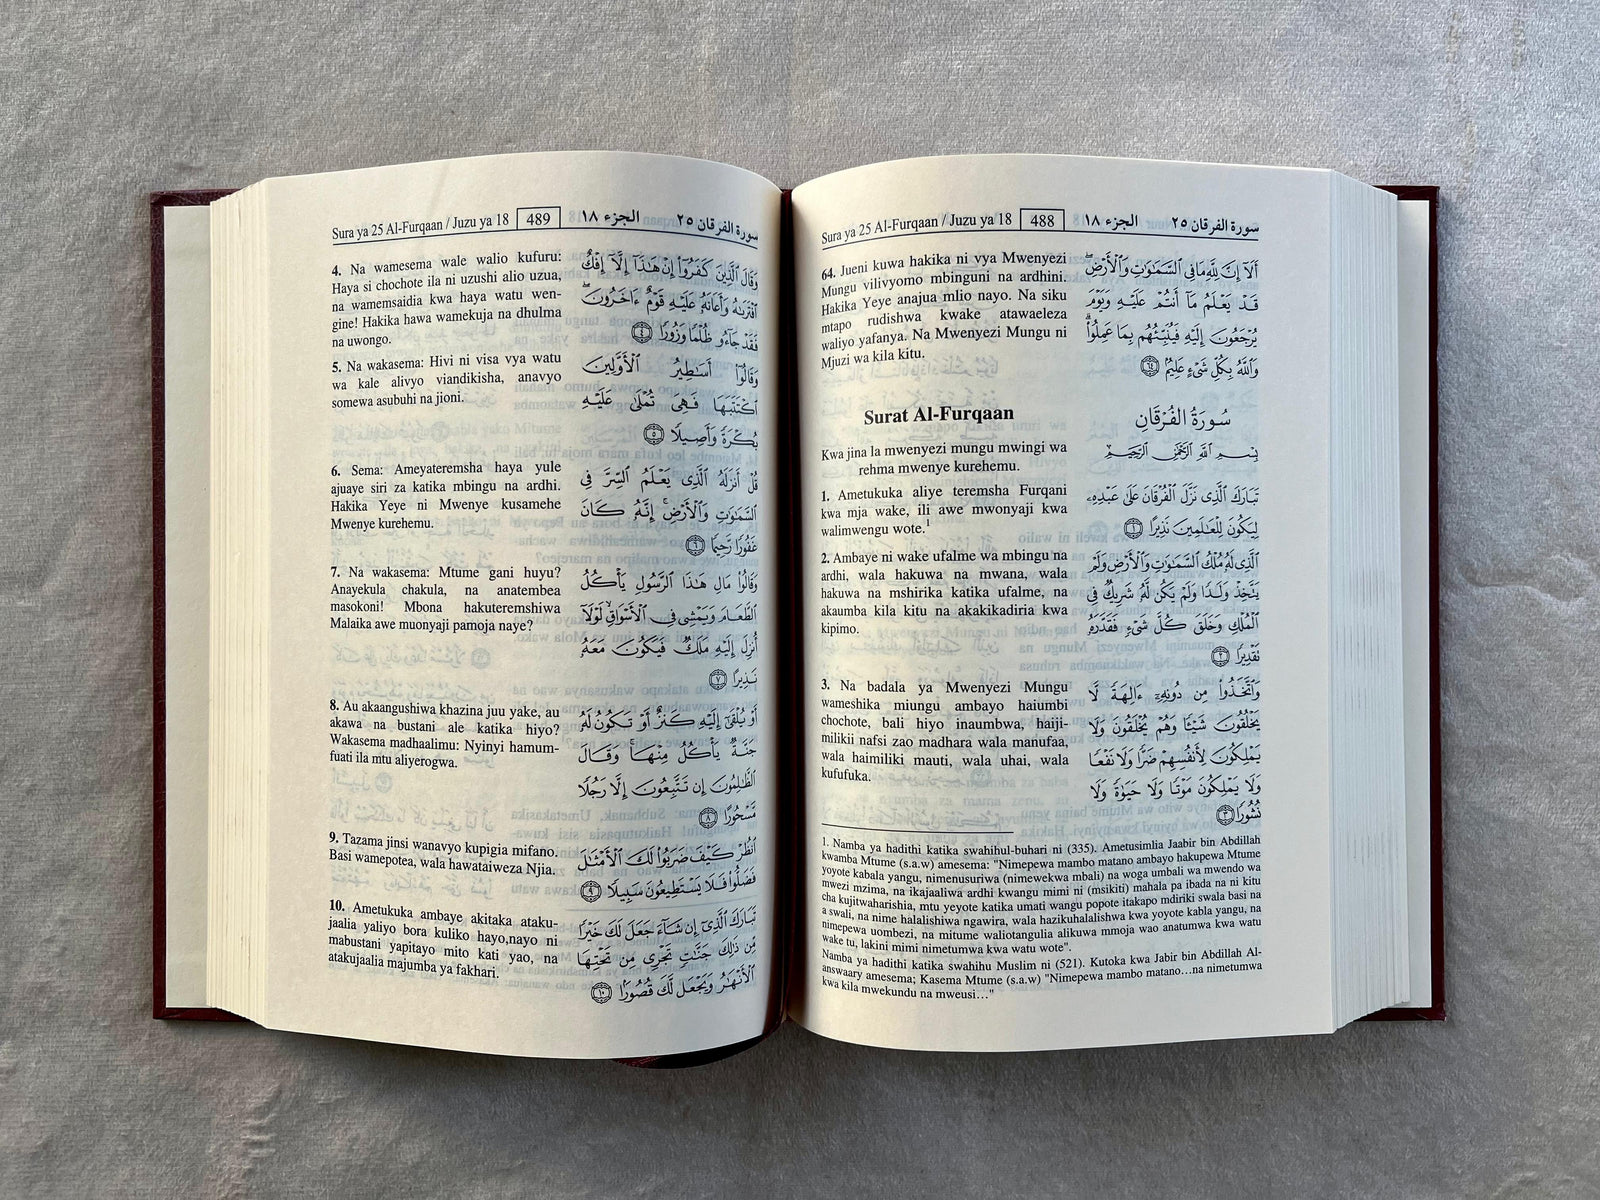 Sura ya 25 Al-Furqaan / Juzu ya 18 488 الجزء ١٨ سورة الفرقان ٢٥
64. Jueni kuwa hakika ni vya Mwenyezi
Mungu vilivyomo mbinguni na ardhini.
Hakika Yeye anajua mlio nayo. Na siku
mtapo rudishwa kwake atawaeleza
waliyo yafanya. Na Mwenyezi Mungu ni
Mjuzi wa kila kitu.
أَلَآ إِنَّ لِلَّهِ مَا فِي ٱلسَّمَٰوَٰتِ وَٱلْأَرْضِۖ
قَدْ يَعْلَمُ مَآ أَنتُمْ عَلَيْهِ وَيَوْمَ
يُرْجَعُونَ إِلَيْهِ فَيُنَبِّئُهُم بِمَا عَمِلُوا۟ۗ
وَٱللَّهُ بِكُلِّ شَىْءٍ عَلِيمٌۢ ٦٤
Surat Al-Furqaan
سُورَةُ الفُرْقَانِ
Kwa jina la mwenyezi mungu mwingi wa
rehma mwenye kurehemu.
بِسْمِ ٱللَّهِ ٱلرَّحْمَٰنِ ٱلرَّحِيمِ
1. Ametukuka aliye teremsha Furqani
kwa mja wake, ili awe mwonyaji kwa
walimwengu wote.1
تَبَارَكَ ٱلَّذِى نَزَّلَ ٱلْفُرْقَانَ عَلَىٰ عَبْدِهِۦ
لِيَكُونَ لِلْعَٰلَمِينَ نَذِيرًا ١
2. Ambaye ni wake ufalme wa mbingu na
ardhi, wala hakuwa na mwana, wala
hakuwa na mshirika katika ufalme, na
akaumba kila kitu na akakikadiria kwa
kipimo.
ٱلَّذِى لَهُۥ مُلْكُ ٱلسَّمَٰوَٰتِ وَٱلْأَرْضِ وَلَمْ
يَتَّخِذْ وَلَدًا وَلَمْ يَكُن لَّهُۥ شَرِيكٌ فِى
ٱلْمُلْكِ وَخَلَقَ كُلَّ شَىْءٍ فَقَدَّرَهُۥ
تَقْدِيرًا ٢
3. Na badala ya Mwenyezi Mungu
wameshika miungu ambayo haiumbi
chochote, bali hiyo inaumbwa, haiji-
milikii nafsi zao madhara wala manufaa,
wala haimiliki mauti, wala uhai, wala
kufufuka.
وَٱتَّخَذُوا۟ مِن دُونِهِۦٓ ءَالِهَةً لَّا
يَخْلُقُونَ شَيْـًٔا وَهُمْ يُخْلَقُونَ وَلَا
يَمْلِكُونَ لِأَنفُسِهِمْ ضَرًّا وَلَا نَفْعًا
وَلَا يَمْلِكُونَ مَوْتًا وَلَا حَيَوٰةً وَلَا
نُشُورًا ٣
1. Namba ya hadithi katika swahihul-buhari ni (335). Ametusimlia Jaabir bin Abdillah
kwamba Mtume (s.a.w) amesema: "Nimepewa mambo matano ambayo hakupewa Mtume
yoyote kabala yangu, nimenusuriwa (nimewekwa mbali) na woga umbali wa mwendo wa
mwezi mzima, na ikajaaliwa ardhi kwangu mimi ni (msikiti) mahala pa ibada na ni kitu
cha kujitwaharishia, mtu yeyote katika umati wangu popote itakapo mdiriki swala basi na
a swali, na nime halalishiwa ngawira, wala hazikuhalalishwa kwa yoyote kabla yangu, na
nimepewa uombezi, na mitume waliotangulia alikuwa mmoja wao anatumwa kwa watu
wake tu, lakini mimi nimetumwa kwa watu wote".
Namba ya hadithi katika swahihu Muslim ni (521). Kutoka kwa Jabir bin Abdillah Al-
answaary amesema; Kasema Mtume (s.a.w) "Nimepewa mambo matano…na nimetumwa
kwa kila mwekundu na mweusi…"
Sura ya 25 Al-Furqaan / Juzu ya 18 489 الجزء ١٨ سورة الفرقان ٢٥
4. Na wamesema wale walio kufuru:
Haya si chochote ila ni uzushi alio uzua,
na wamemsaidia kwa haya watu wen-
gine! Hakika hawa wamekuja na dhulma
na uwongo.
وَقَالَ ٱلَّذِينَ كَفَرُوٓا۟ إِنْ هَٰذَآ إِلَّآ إِفْكٌ
ٱفْتَرَىٰهُ وَأَعَانَهُۥ عَلَيْهِ قَوْمٌ ءَاخَرُونَۖ
فَقَدْ جَآءُو ظُلْمًا وَزُورًا ٤
5. Na wakasema: Hivi ni visa vya watu
wa kale alivyo viandikisha, anavyo
somewa asubuhi na jioni.
وَقَالُوٓا۟ أَسَٰطِيرُ ٱلْأَوَّلِينَ
ٱكْتَتَبَهَا فَهِىَ تُمْلَىٰ عَلَيْهِ
بُكْرَةً وَأَصِيلًا ٥
6. Sema: Ameyateremsha haya yule
ajuaye siri za katika mbingu na ardhi.
Hakika Yeye ni Mwenye kusamehe
Mwenye kurehemu.
قُلْ أَنزَلَهُ ٱلَّذِى يَعْلَمُ ٱلسِّرَّ فِى
ٱلسَّمَٰوَٰتِ وَٱلْأَرْضِۚ إِنَّهُۥ كَانَ
غَفُورًا رَّحِيمًا ٦
7. Na wakasema: Mtume gani huyu?
Anayekula chakula, na anatembea
masokoni! Mbona hakuteremshiwa
Malaika awe muonyaji pamoja naye?
وَقَالُوا۟ مَالِ هَٰذَا ٱلرَّسُولِ يَأْكُلُ
ٱلطَّعَامَ وَيَمْشِى فِى ٱلْأَسْوَاقِۙ لَوْلَآ
أُنزِلَ إِلَيْهِ مَلَكٌ فَيَكُونَ مَعَهُۥ
نَذِيرًا ٧
8. Au akaangushiwa khazina juu yake, au
akawa na bustani ale katika hiyo?
Wakasema madhaalimu: Nyinyi hamum-
fuati ila mtu aliyerogwa.
أَوْ يُلْقَىٰٓ إِلَيْهِ كَنزٌ أَوْ تَكُونُ لَهُۥ
جَنَّةٌ يَأْكُلُ مِنْهَاۚ وَقَالَ
ٱلظَّٰلِمُونَ إِن تَتَّبِعُونَ إِلَّا رَجُلًا
مَّسْحُورًا ٨
9. Tazama jinsi wanavyo kupigia mifano.
Basi wamepotea, wala hawataiweza Njia.
ٱنظُرْ كَيْفَ ضَرَبُوا۟ لَكَ ٱلْأَمْثَٰلَ
فَضَلُّوا۟ فَلَا يَسْتَطِيعُونَ سَبِيلًا ٩
10. Ametukuka ambaye akitaka ataku-
jaalia yaliyo bora kuliko hayo,nayo ni
mabustani yapitayo mito kati yao, na
atakujaalia majumba ya fakhari.
تَبَارَكَ ٱلَّذِىٓ إِن شَآءَ جَعَلَ لَكَ خَيْرًا
مِّن ذَٰلِكَ جَنَّٰتٍ تَجْرِى مِن تَحْتِهَا
ٱلْأَنْهَٰرُ وَيَجْعَل لَّكَ قُصُورًۢا ١٠